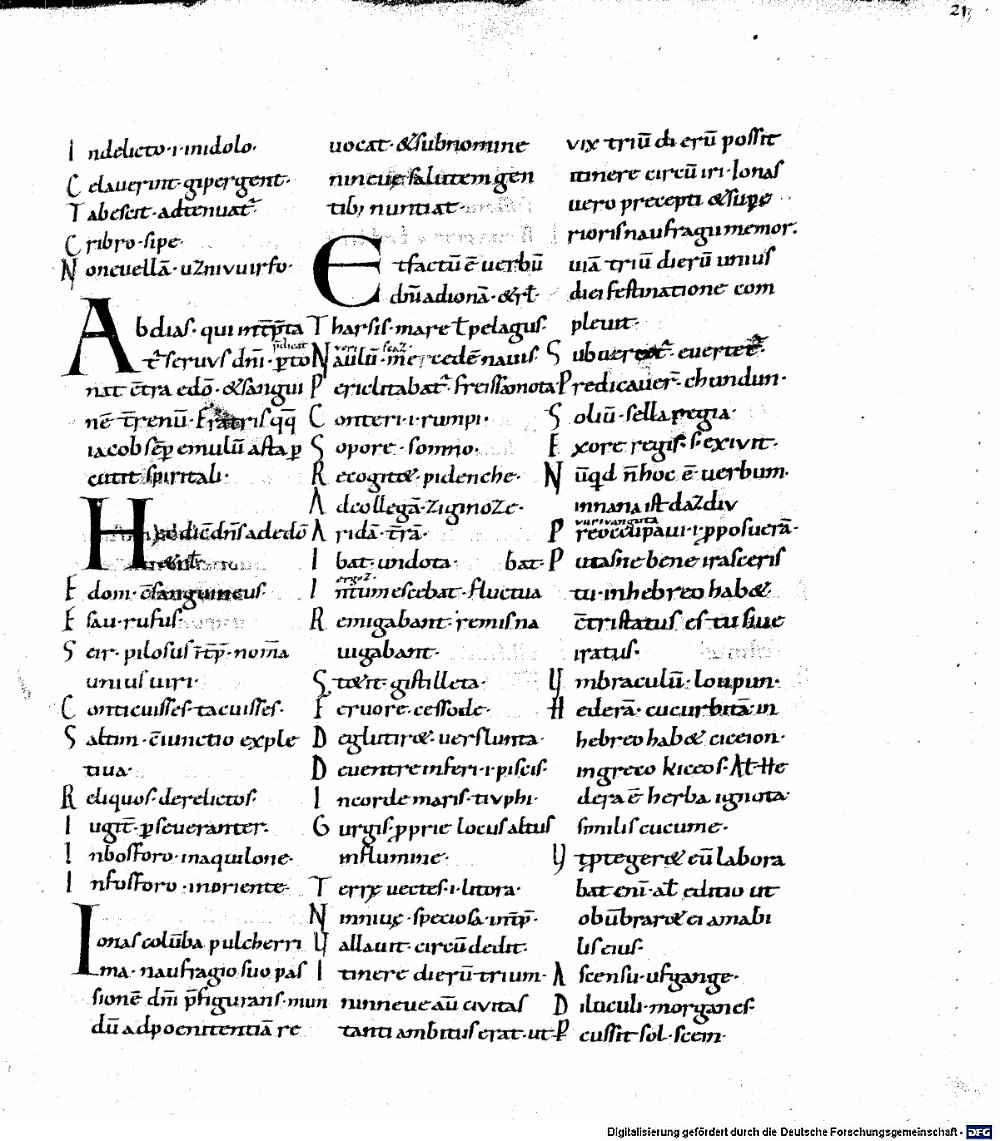 21
I ndelicto·i·inidolo·
C elauerint·gipergent·
T abescit·adtenuat᷑
C ribro·sipe·
N oneuellā·uzniuuirfo·
Abdias·qui int̄p̄ta
t᷑ seruus dn̄i·
nat c̄tra edō·&sangui
nē t̄renū·Fratris qq̄
iacob sēp emulū asta ꝑ
cutit spiritali·
Hec dic̄ dn̄s ad edō
E dom·c̄sanguineus·
E sau·rufus·
S eir·pilosus īt̄p̄·nom̄a
unius uiri·
C onticuisses·tacuisses·
S altim·c̄iunctio exple
tiua·
R eliquos·derelictos·
I ugit̄·ꝑseueranter·
I nbosforo·inaquilone·
I nfosforo·inoriente·
Ionas colūba pulcherri
ma·naufragio suo pas
sionē dn̄i p̄figurans·mun
dū adpoenitentiā re
uocat·&subnomine
nineue salutem gen
tib; nuntiat·
Et factū ē uerbū
dn̄i adionā·&rł
T harsis·mare ł pelagus·
N aulū·mercedē nauis·
P ericlitabat᷑·freissamota
C onteri·i·rumpi·
S opore·somno·
R ecognit&·pidenche·
A dcollegā·ziginoze·
A ridā·t̄rā·
I bat·undota· bat·
I ntumescebat·fluctua
R emigabant·remis na
uigabant·
S t&it·gistilleta·
F eruore·cessode·
D eglutir&·uerslunta·
D euentre inferi·i·piscis·
I ncorde maris·tiuphi·
G urgis·ꝓprie locus altus
influmine·
T errę uectes·i·litora·
N imiuę·speciosa·int̄p̄·
U allauit·circūdedit·
I tinere dierū trium·
ninneue aū ciuitas
tanti ambitus erat·ut
uix triū di erū possit
itinere circū iri·Ionas
uero precepti &supe
rioris naufragii memor·
uiā triū dierū unius
diei festinatione com
pleuit·
S
P redicauer̄·chundun·
S oliū·sella regia·
E xore regis·s·exiuit·
N ūqd n̄ hoc ē uerbum·
innana ist daz diu
P reoccupaui·i·ꝓposuerā·
P utasne bene irasceris
tu·inhebreo hab&
c̄tristatus es tu siue
iratus·
U mbraculū·loupun·
H ederā·cucurbitā·in
hebreo hab& ciceion·
ingreco kiceos·At He
dera ē herba ignota·
similis cucume·
U t ꝓteger& eū labora
bat enī·ał editio ut
obūbrar& ei amabi
lis eius·
A scensu·ufgange·
D iluculi·morganes·
P cussit sol·scein·
Digitalisierung gefördert durch die Deutsche Forschungsgemeinschaft - DFG